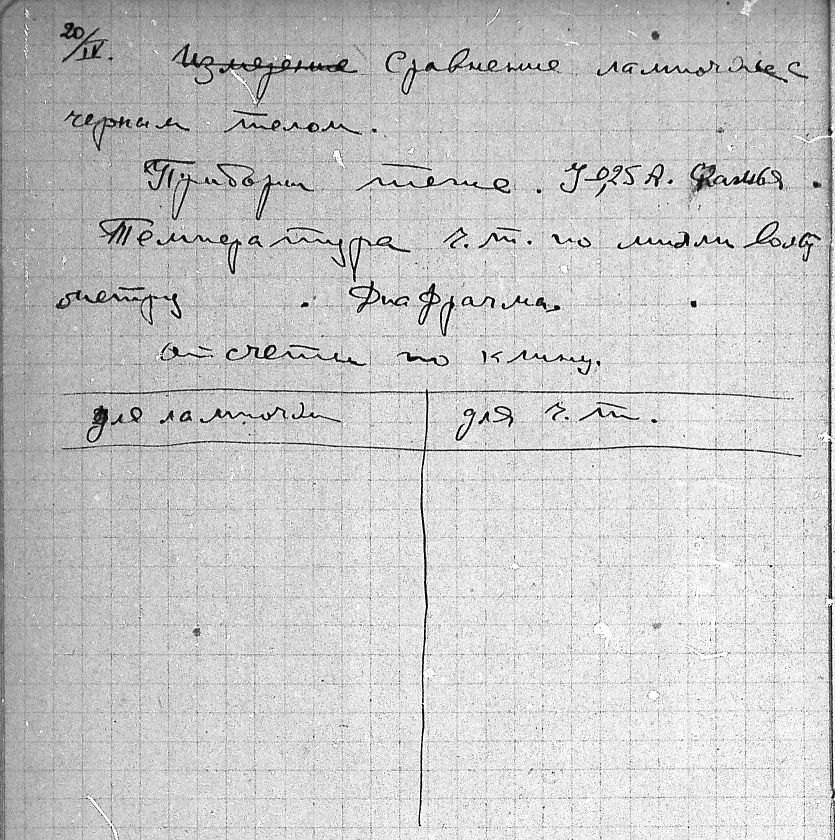 20/IV. Измерение Сравнение лампочки с
черным телом.
Приборы те же. J-0,25 А.
Температура ч.т. по милли вольт
ометру . Диафрагма .
отсчеты по клину.
для лампочки для ч.т.